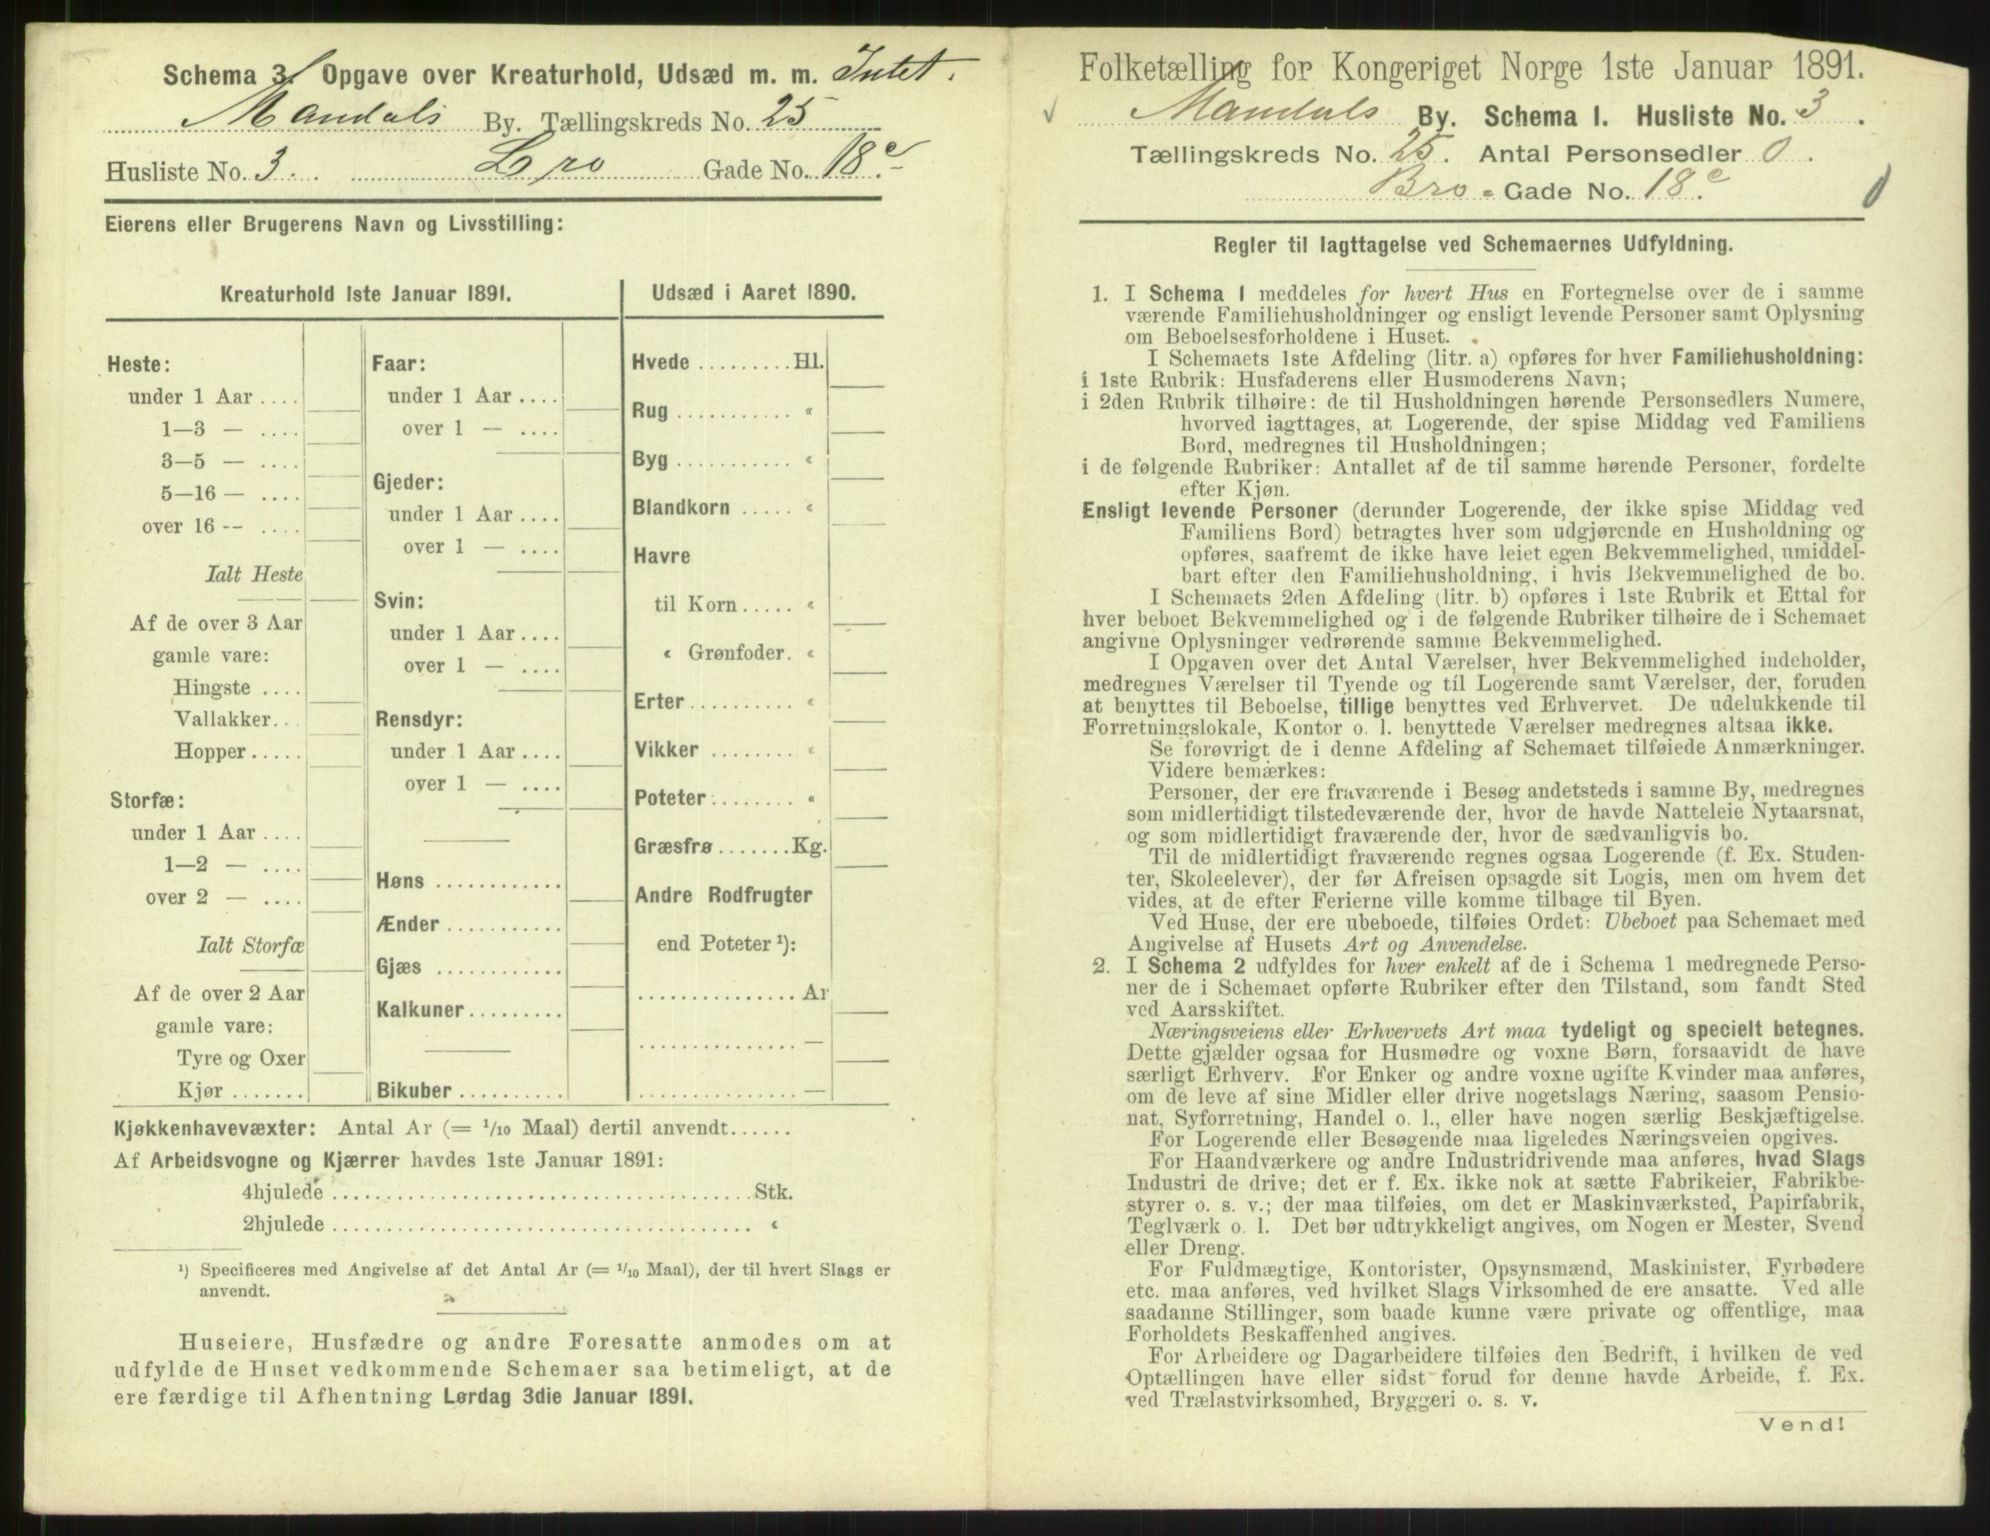 Schema 3. Opgave over Kreaturhold, Udsæd m. m. Intet.
Mandals By. Tællingskreds No. 25
Husliste No. 3. Bro Gade No. 18c.
Eierens eller Brugerens Navn og Livsstilling:
Kreaturhold 1ste Januar 1891.
Heste:
under 1 Aar ....
1—3 — ....
3—5 — ....
5—16 — ....
over 16 -- ....
Ialt Heste
Af de over 3 Aar
gamle vare:
Hingste ....
Vallakker...
Hopper.....
Storfæ:
under 1 Aar ....
1—2 — ....
over 2 — ....
Ialt Storfæ
Af de over 2 Aar
gamle vare:
Tyre og Oxer
Kjør .......
Faar:
under 1 Aar ....
over 1 — ....
Gjeder:
under 1 Aar ....
over 1 — ....
Svin:
under 1 Aar ....
over 1 — ....
Rensdyr:
under 1 Aar ....
over 1 — ....
Høns ............
Ænder ...........
Gjæs ............
Kalkuner.........
Bikuber ..........
Udsæd i Aaret 1890.
Hvede .........Hl.
Rug ........... «
Byg ........... «
Blandkorn ..... «
Havre
til Korn ..... «
« Grønfoder. «
Erter.......... «
Vikker ........ «
Poteter ........ «
Græsfrø .......Kg.
Andre Rodfrugter
end Poteter ¹):
............... Ar
............... —
............... —
Kjøkkenhavevæxter: Antal Ar (= 1/10 Maal) dertil anvendt......
Af Arbeidsvogne og Kjærrer havdes 1ste Januar 1891:
4hjulede ...................................... Stk.
2hjulede ...................................... «
¹) Specificeres med Angivelse af det Antal Ar (= 1/10 Maal), der til hvert Slags er
anvendt.
Huseiere, Husfædre og andre Foresatte anmodes om at
udfylde de Huset vedkommende Schemaer saa betimeligt, at de
ere færdige til Afhentning Lørdag 3die Januar 1891.
Folketælling for Kongeriget Norge 1ste Januar 1891.
Mandals By. Schema I. Husliste No. 3.
Tællingskreds No. 25. Antal Personsedler 0.
Bro - Gade No. 18c. 0
Regler til Iagttagelse ved Schemaernes Udfyldning.
1. I Schema 1 meddeles for hvert Hus en Fortegnelse over de i samme
værende Familiehusholdninger og ensligt levende Personer samt Oplysning
om Beboelsesforholdene i Huset.
I Schemaets 1ste Afdeling (litr. a) opføres for hver Familiehusholdning:
i 1ste Rubrik: Husfaderens eller Husmoderens Navn;
i 2den Rubrik tilhøire: de til Husholdningen hørende Personsedlers Numere,
hvorved iagttages, at Logerende, der spise Middag ved Familiens
Bord, medregnes til Husholdningen;
i de følgende Rubriker: Antallet af de til samme hørende Personer, fordelte
efter Kjøn.
Ensligt levende Personer (derunder Logerende, der ikke spise Middag ved
Familiens Bord) betragtes hver som udgjørende en Husholdning og
opføres, saafremt de ikke have leiet egen Bekvemmelighed, umiddel-
bart efter den Familiehusholdning, i hvis Bekvemmelighed de bo.
I Schemaets 2den Afdeling (litr. b) opføres i 1ste Rubrik et Ettal for
hver beboet Bekvemmelighed og i de følgende Rubriker tilhøire de i Schemaet
angivne Oplysninger vedrørende samme Bekvemmelighed.
I Opgaven over det Antal Værelser, hver Bekvemmelighed indeholder,
medregnes Værelser til Tyende og til Logerende samt Værelser, der, foruden
at benyttes til Beboelse, tillige benyttes ved Erhvervet. De udelukkende til
Forretningslokale, Kontor o. l. benyttede Værelser medregnes altsaa ikke.
Se forøvrigt de i denne Afdeling af Schemaet tilføiede Anmærkninger.
Videre bemærkes:
Personer, der ere fraværende i Besøg andetsteds i samme By, medregnes
som midlertidigt tilstedeværende der, hvor de havde Natteleie Nytaarsnat,
og som midlertidigt fraværende der, hvor de sædvanligvis bo.
Til de midlertidigt fraværende regnes ogsaa Logerende (f. Ex. Studen-
ter, Skoleelever), der før Afreisen opsagde sit Logis, men om hvem det
vides, at de efter Ferierne ville komme tilbage til Byen.
Ved Huse, der ere ubeboede, tilføies Ordet: Ubeboet paa Schemaet med
Angivelse af Husets Art og Anvendelse.
2. I Schema 2 udfyldes for hver enkelt af de i Schema 1 medregnede Perso-
ner de i Schemaet opførte Rubriker efter den Tilstand, som fandt Sted
ved Aarsskiftet.
Næringsveiens eller Erhvervets Art maa tydeligt og specielt betegnes.
Dette gjælder ogsaa for Husmødre og voxne Børn, forsaavidt de have
særligt Erhverv. For Enker og andre voxne ugifte Kvinder maa anføres,
om de leve af sine Midler eller drive nogetslags Næring, saasom Pensio-
nat, Syforretning, Handel o. l., eller have nogen særlig Beskjæftigelse.
For Logerende eller Besøgende maa ligeledes Næringsveien opgives.
For Haandværkere og andre Industridrivende maa anføres, hvad Slags
Industri de drive; det er f. Ex. ikke nok at sætte Fabrikeier, Fabrikbe-
styrer o. s. v.; der maa tilføies, om det er Maskinværksted, Papirfabrik,
Teglværk o. l. Det bør udtrykkeligt angives, om Nogen er Mester, Svend
eller Dreng.
For Fuldmægtige, Kontorister, Opsynsmænd, Maskinister, Fyrbødere
etc. maa anføres, ved hvilket Slags Virksomhed de ere ansatte. Ved alle
saadanne Stillinger, som baade kunne være private og offentlige, maa
Forholdets Beskaffenhed angives.
For Arbeidere og Dagarbeidere tilføies den Bedrift, i hvilken de ved
Optællingen have eller sidst forud for denne havde Arbeide, f. Ex.
ved Trælastvirksomhed, Bryggeri o. s. v.
Vend!